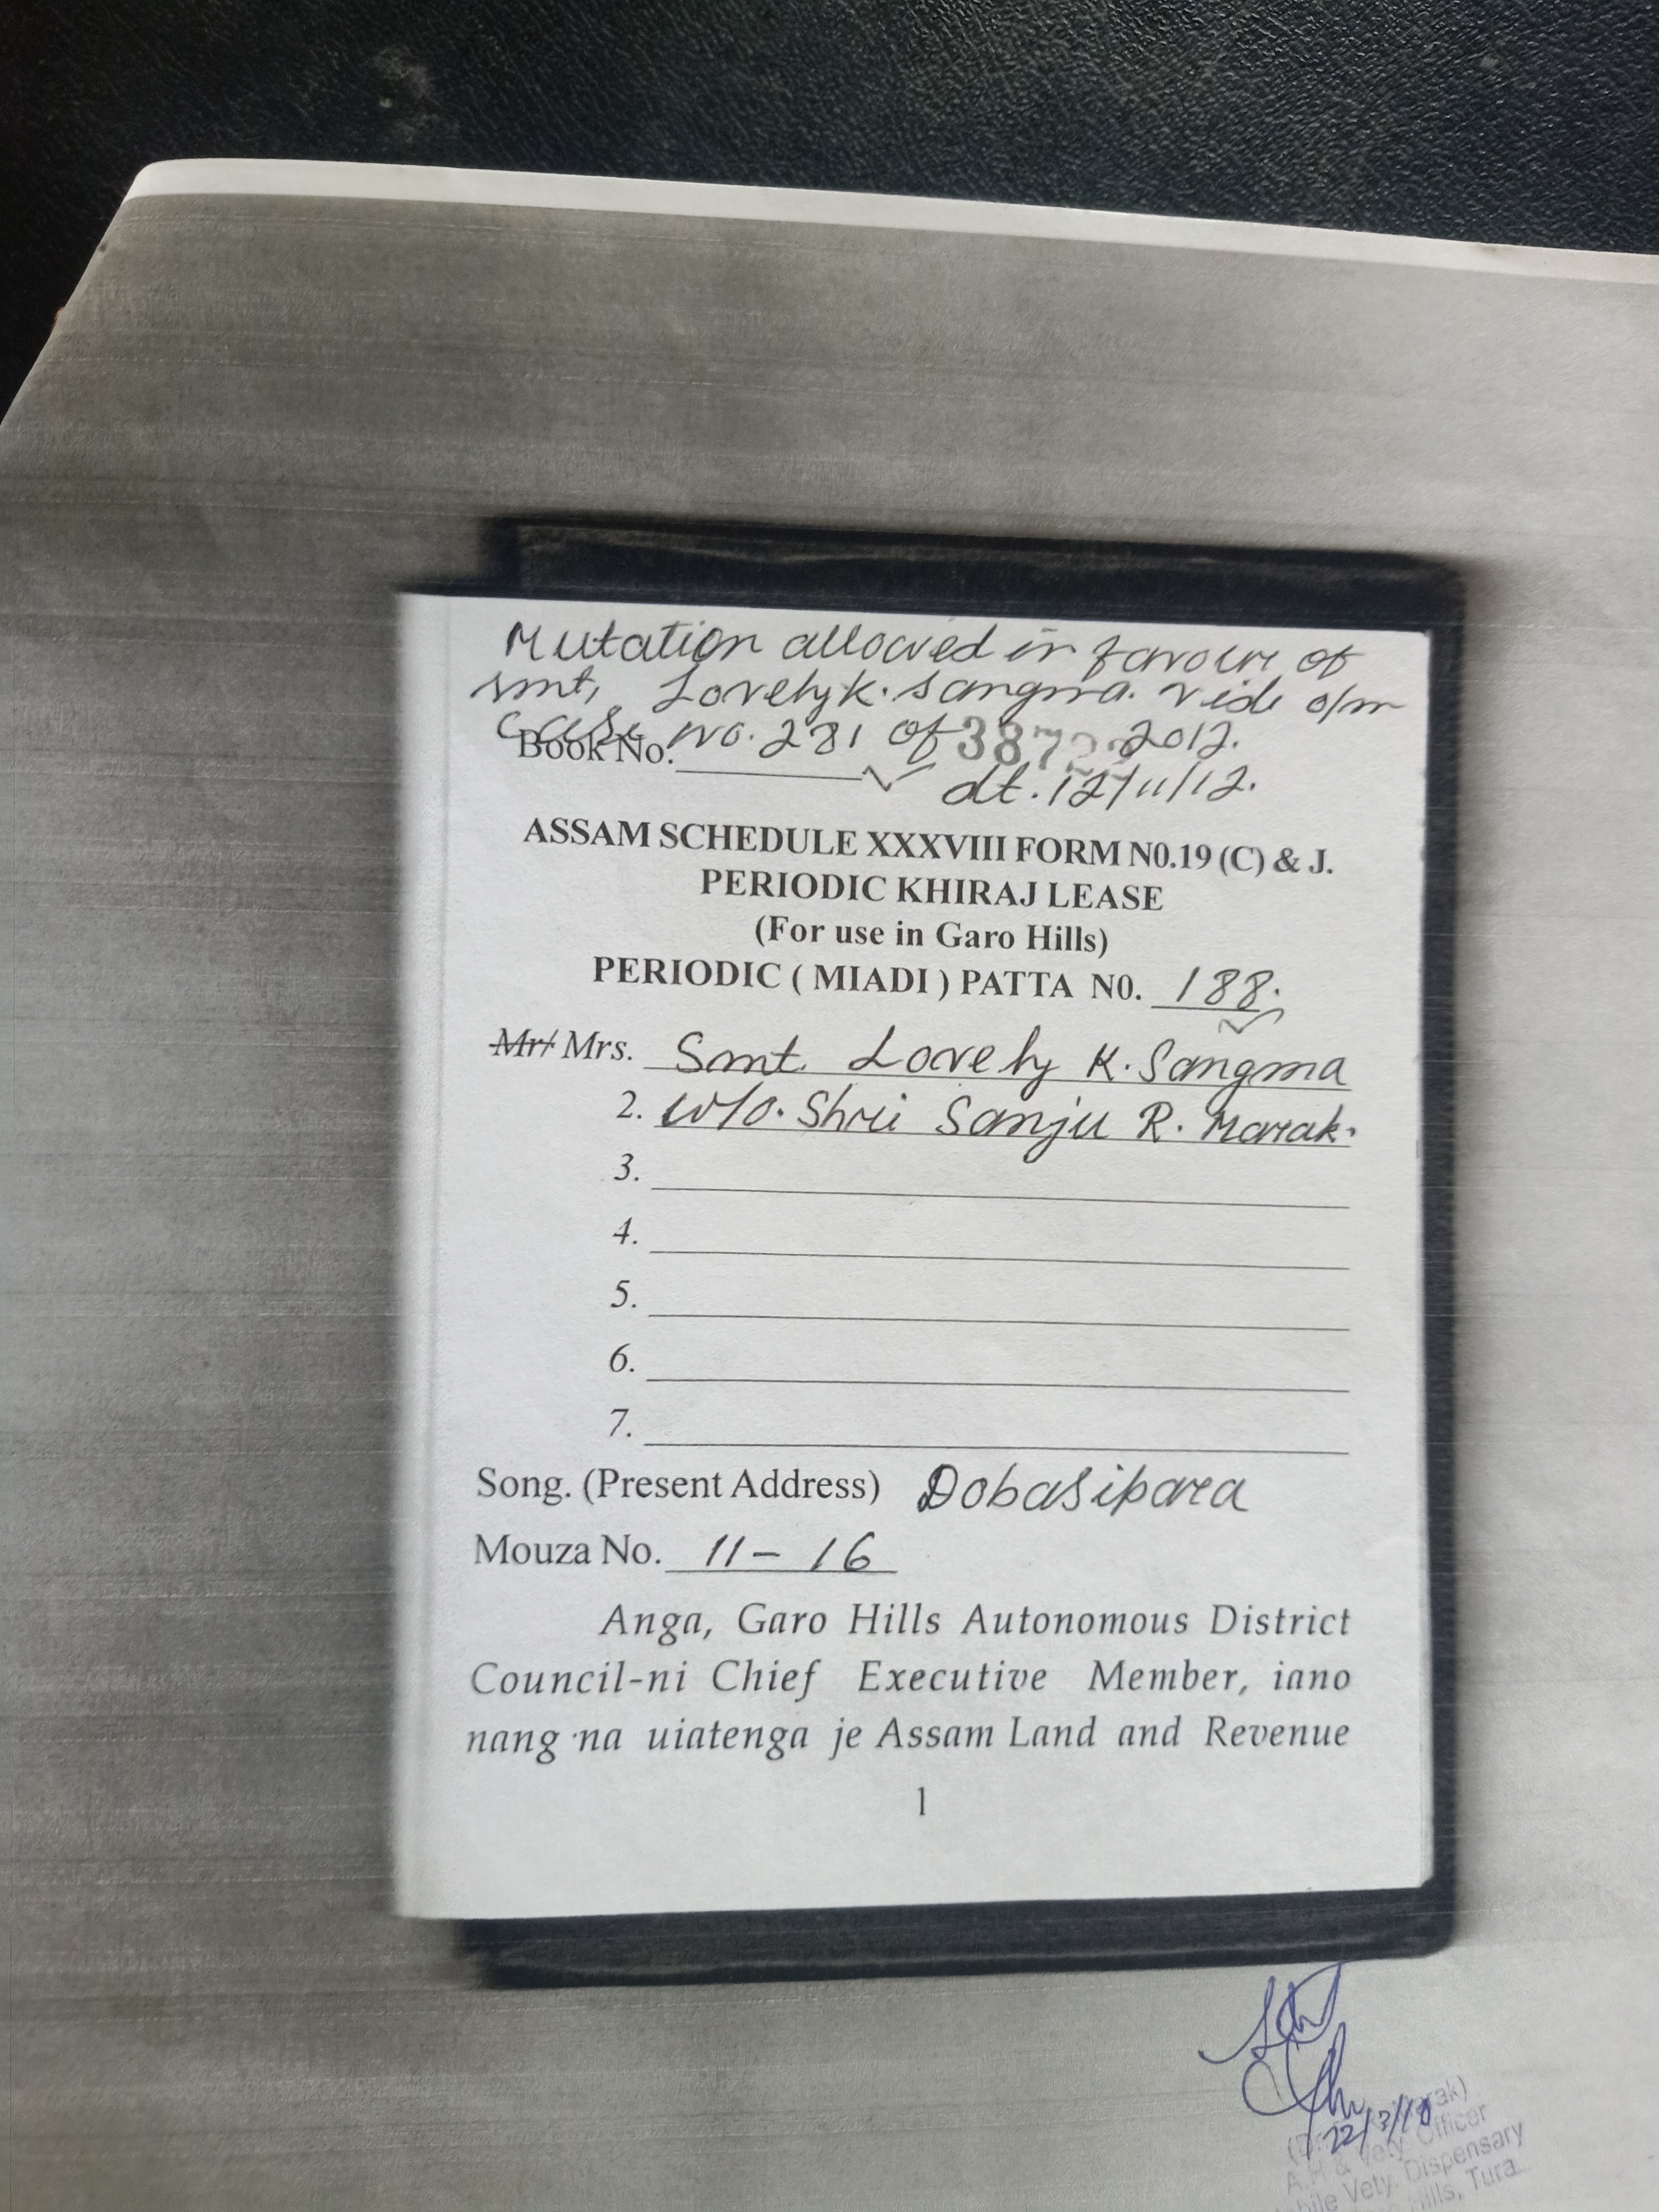 Mutation allowed in favour of
smt, Lovely K. Sangma. vide o/m
case no. 281 of 2012.
Book No. 3872
dt. 12/11/12.
ASSAM SCHEDULE XXXVIII FORM N0.19 (C) & J.
PERIODIC KHIRAJ LEASE
(For use in Garo Hills)
PERIODIC ( MIADI ) PATTA N0. 188.
Mr/ Mrs. Smt. Lovely K. Sangma
2. W/O. Shri Sanju R. Marak.
3.
4.
5.
6.
7.
Song. (Present Address) Dobasipara
Mouza No. 11 - 16
Anga, Garo Hills Autonomous District
Council-ni Chief Executive Member, iano
nang·na uiatenga je Assam Land and Revenue
1
22/3/18
Vety. Officer
Vety. Dispensary
Hills, Tura